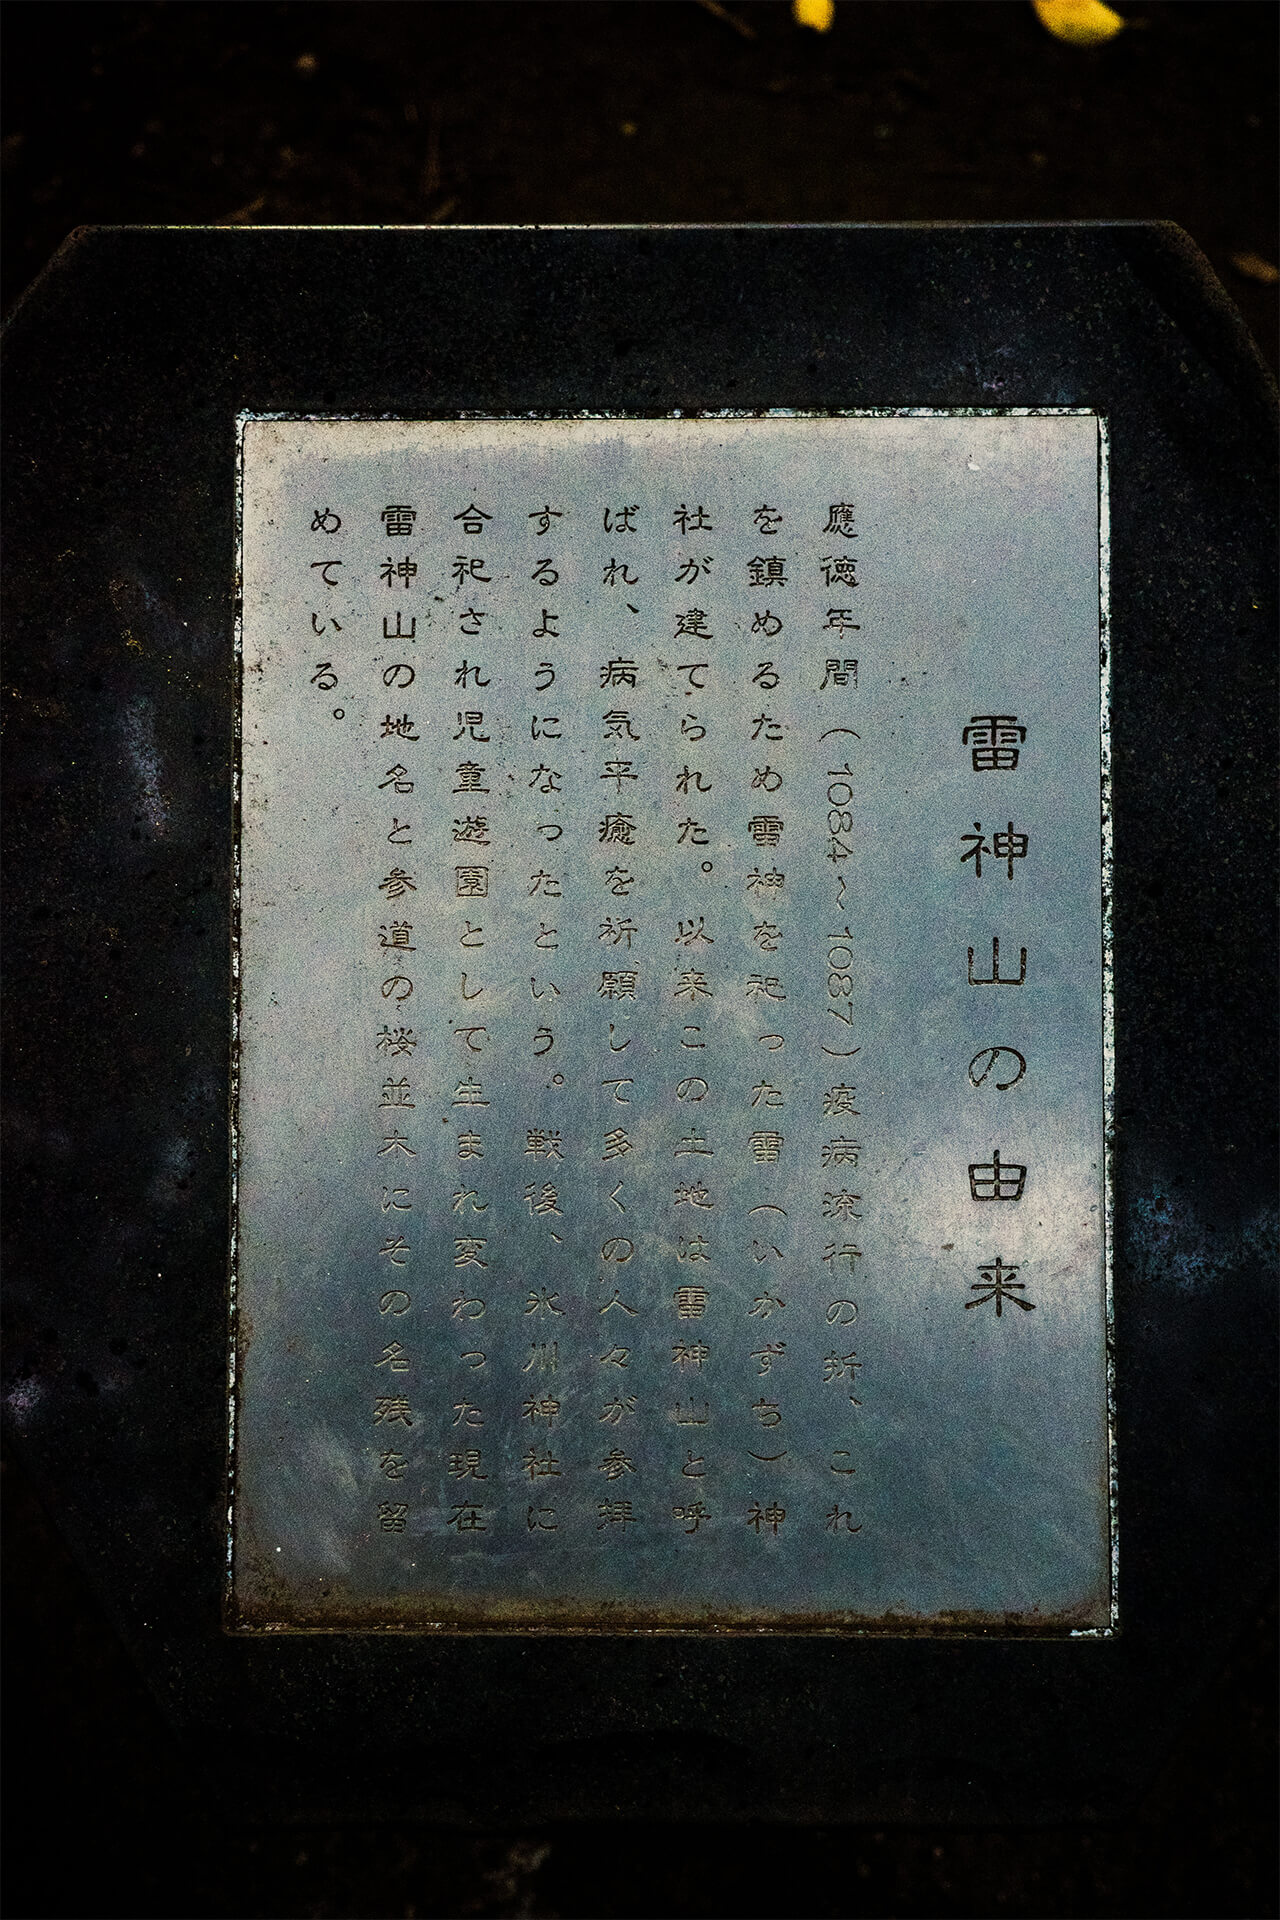 雷神山の由来
應徳年間(1084〜1087)疫病流行の折、これ
を鎮めるため雷神を祀った雷(いかずち)神
社が建てられた。以来この土地は雷神山と呼
ばれ、病気平癒を祈願して多くの人々が参拝
するようになったという。戦後、氷川神社に
合祀され児童遊園として生まれ変わった現在
雷神山の地名と参道の桜並木にその名残を留
めている。